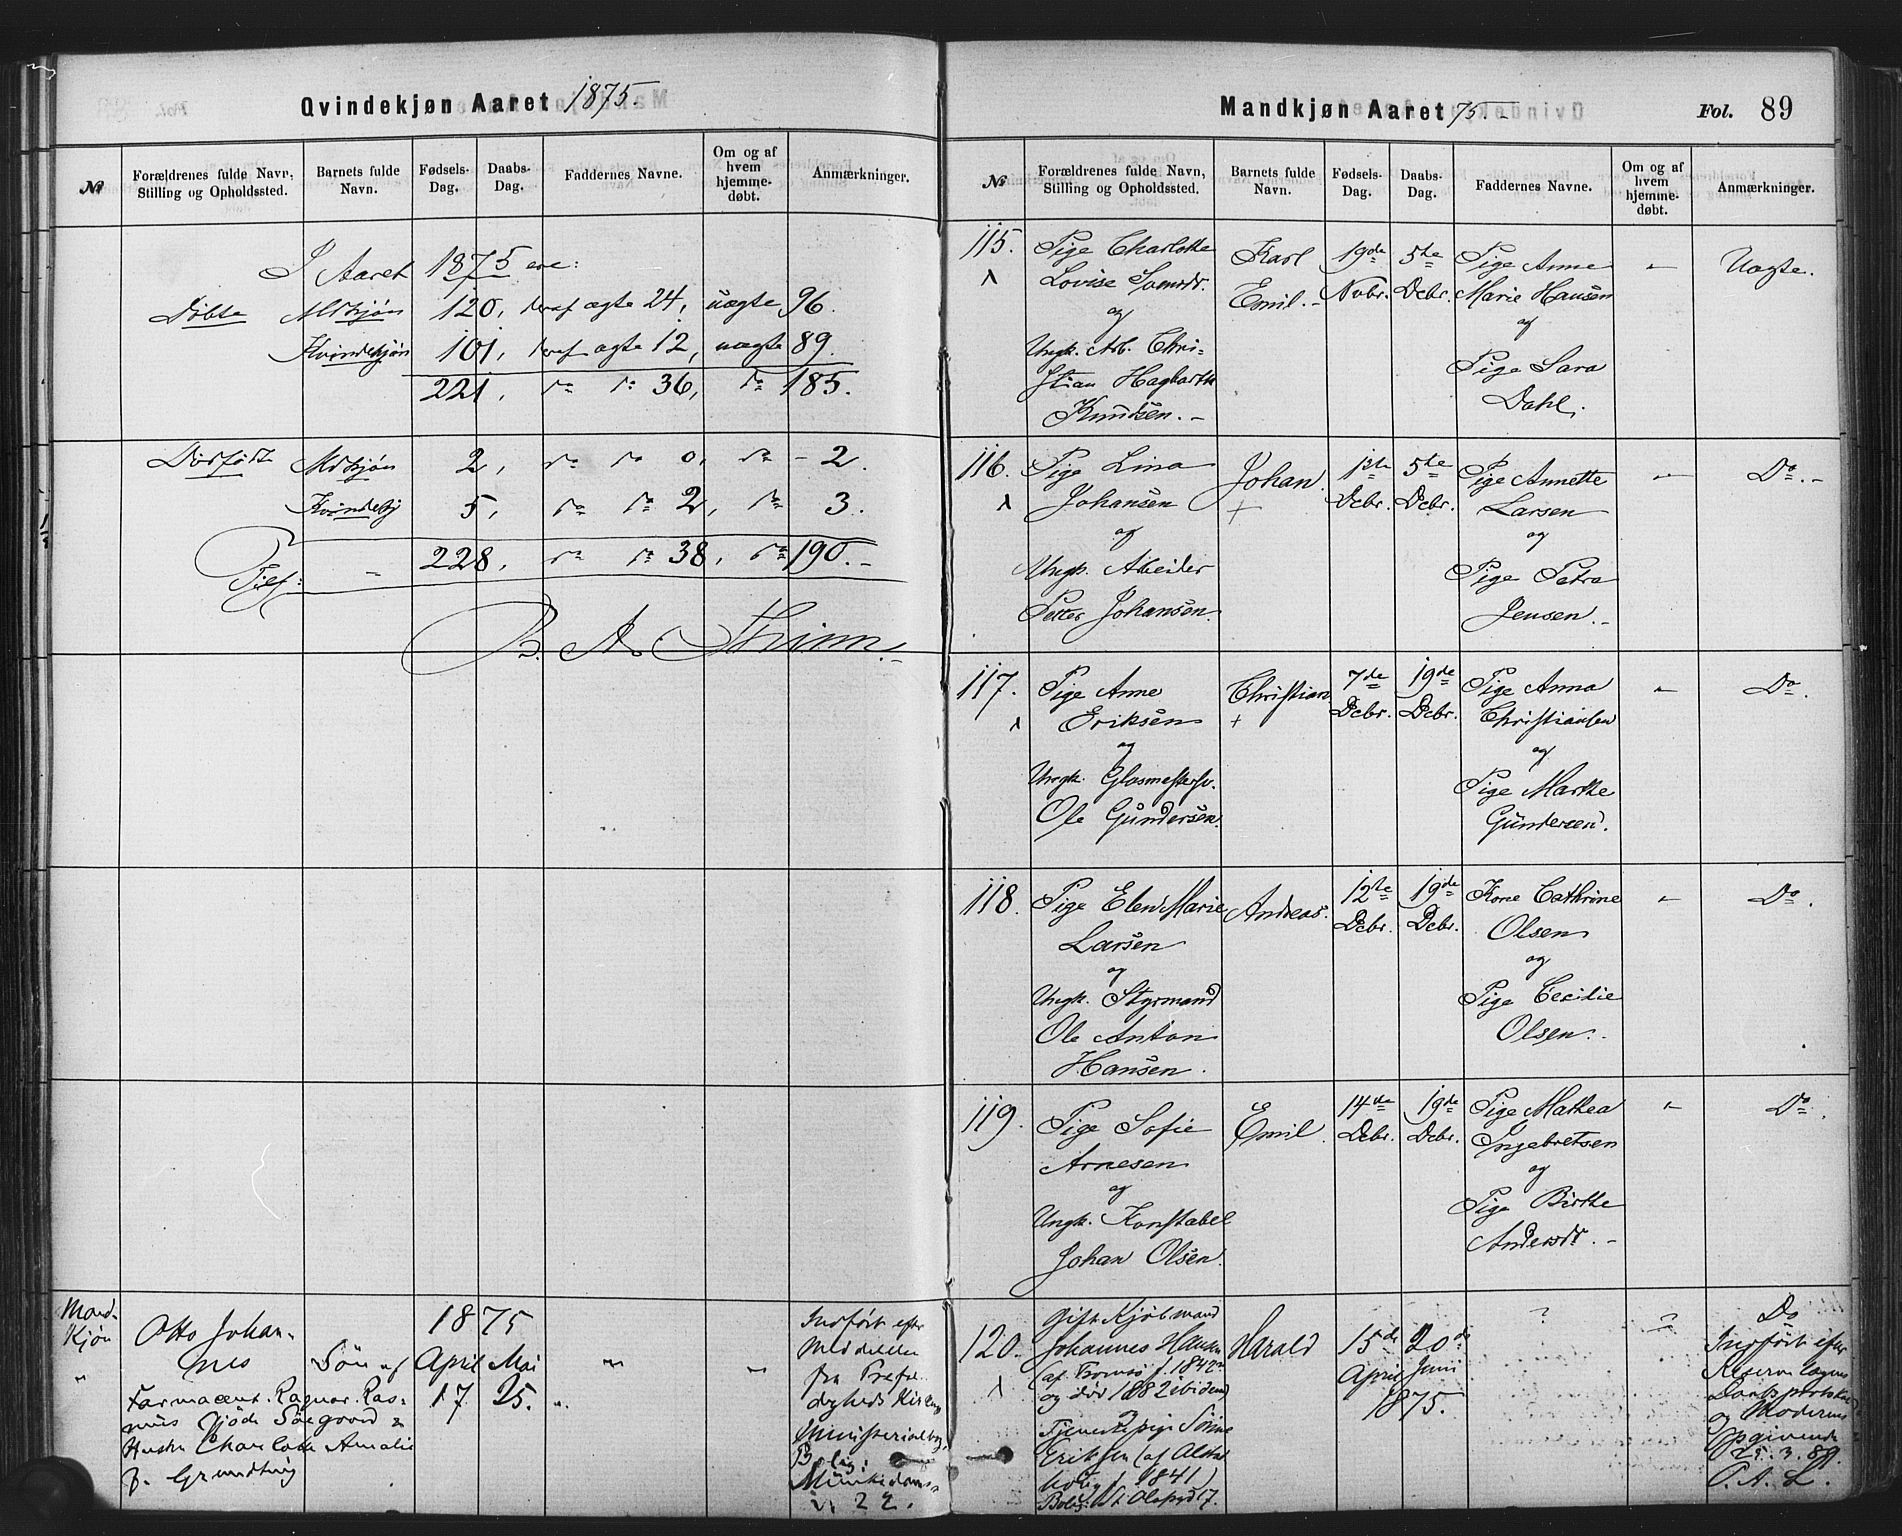 Qvindekjøn Aaret 1875.
№
Forældrenes fulde Navn, Stilling og Opholdssted.
Barnets fulde Navn.
Fødsels-Dag.
Daabs-Dag.
Faddernes Navne.
Om og af hvem hjemme-døbt.
Anmærkninger.
I Aaret 1875 ere:
Døbte Mdkjøn 120, deraf ægte 24, uægte 96.
Kvindekjøn 101, deraf ægte 12, uægte 89.
221, do do 36, do 185.
Dødfødte Mdkjøn 2, do do 0, do - 2.
Kvindekj 5, do do 2, do 3.
Tils: - 228, do do 38, do 190.-
Mand-
kjøn
"
Otto Johan-
nes
Søn af
Farmaceut Ragnar Ras-
mus Søegaard &
Hustru Charlotte Amalie
f. Grundtvig
1875
April Mai
17 25.
Indført efter
Meddelelse
fra
Kirkes
Ministerialbog.
Bolig:
Munkedams
v. 22.
Mandkjøn Aaret 75.-
Fol. 89
№
Forældrenes fulde Navn, Stilling og Opholdssted.
Barnets fulde Navn.
Fødsels-Dag.
Daabs-Dag.
Faddernes Navne.
Om og af hvem hjemme-døbt.
Anmærkninger.
115.
Pige Charlotte
Lovise
og
Ungk. Arb. Chri-
stian Hagbarth
Knudsen.-
Karl
Emil.-
19de
Novbr.
5te
Decbr.
Pige Anne
Marie Hansen
og
Pige Sara
Dahl.
Uægte.
116.
Pige Lina
Johansen
og
Ungk. Arbeider
Petter Johansen.
Johan.
+
1ste
Decbr.
5te
Decbr.
Pige Annette
Larsen
og
Pige Petra
Jensen.-
Do.-
117.
Pige Anne
Eriksen
og
Ungk. Glasmestersv.
Ole Gundersen.
Christian
+
7de
Decbr.
19de
Decbr.
Pige Anna
Christiansen
og
Pige Marthe
Gundersen.
Do.
118.
Pige Elen Marie
Larsen
og
Ungk. Styrmand
Ole Anton
Hansen.
Andreas.
12te
Decbr.
19de
Decbr.
Kone Cathrine
Olsen
og
Pige Cecilie
Olsen.
Do.
119.
Pige Sofie
Arnesen
og
Ungk. Konstabel
Johan Olsen.
Emil.
14de
Decbr.
19de
Decbr.
Pige Mathea
Ingebretsen
og
Pige Birthe
Andersdr.-
Do.
120.
Gift Kjøbmand
Johannes Hansen
(af Tromsø f. 1842
og død 1882 ibidem)
og
Tjenestepige Sørine
Eriksen (af
f. 1841)
Bolig: St. Olsgd 17.
Harald
15de
April
20de
Juni
1875.
Do
Indført efter
Daabsprotokol
og Moderens
Opgivende
25.3.89.